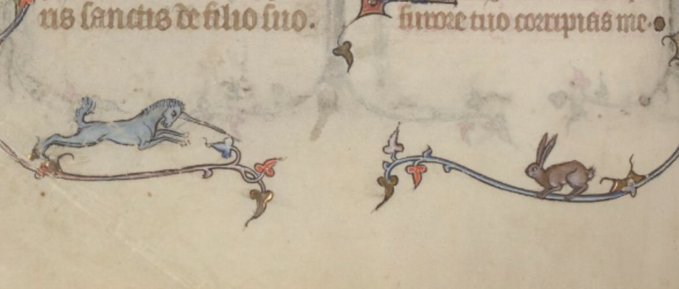 us sanctis de filio suo.
furore tuo corripias me.